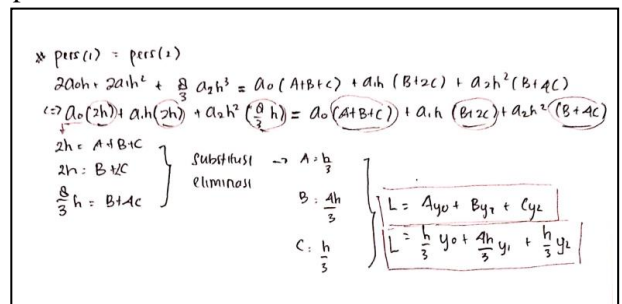 * pers (1) = pers (2)
2a0h + 2a1h² + 8/3 a2h³ = a0 (A+B+C) + a1h (B+2C) + a2h² (B+4C)
(=) a0 (2h) + a1h (2h) + a2h² (8/3 h) = a0 (A+B+C) + a1h (B+2C) + a2h² (B+4C)
2h = A+B+C
2h = B+2C
8/3 h = B+4C
Substitusi
eliminasi
→ A = h/3
B = 4h/3
C = h/3
L = Ay0 + By1 + Cy2
L = h/3 y0 + 4h/3 y1 + h/3 y2